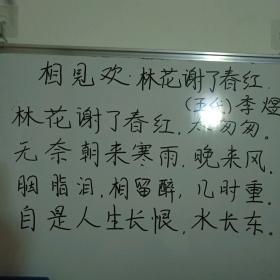 相见欢·林花谢了春红.
(五代)李煜
林花谢了春红,太匆匆.
无奈朝来寒雨,晚来风.
胭脂泪,相留醉,几时重.
自是人生长恨,水长东.